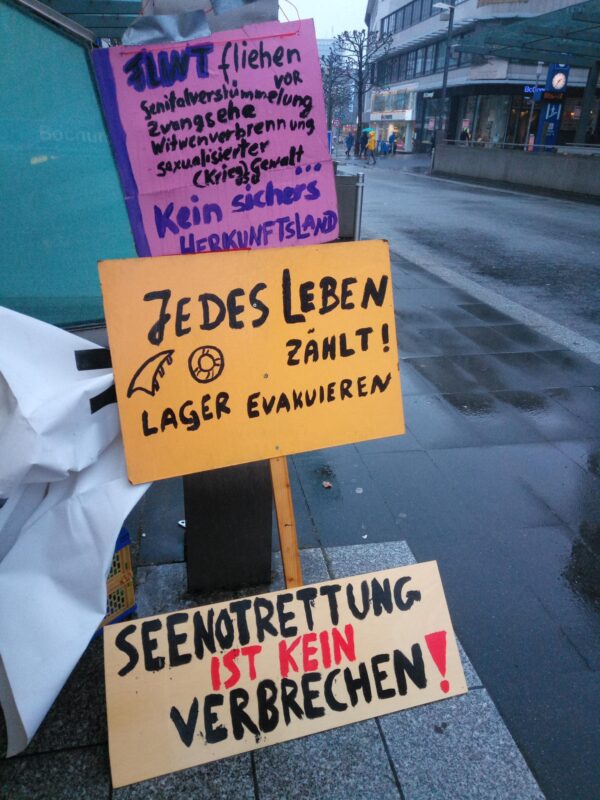 FLINT fliehen
VOR
Genitalverstümmelung
Zwangsehe
Witwenverbrennung
sexualisierter
(Krieg) Gewalt
...
Kein sichers
HERKUNFTSLAND
JEDES LEBEN
ZÄHLT!
LAGER EVAKUIEREN
SEENOTRETTUNG
IST KEIN
VERBRECHEN!
Bochum